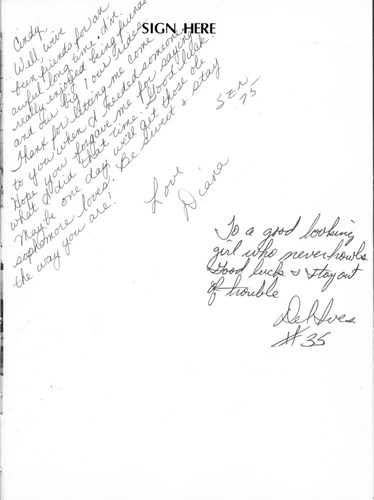 SIGN HERE
Cindy,
Well we've
been friends for an
awful long time. I've
really enjoyed being friends
and our big 1 our rides.
Thank for letting me come
to you when I needed someone
Hope you forgave me for saying
what I did that time. Good luck!
Maybe one day we'll get those ole
sophmore loves. Be Sweet & stay
the way you are!
Love
Diana
SEN.
75
To a good looking
girl who never howls
Good luck & stay out
of trouble
#35